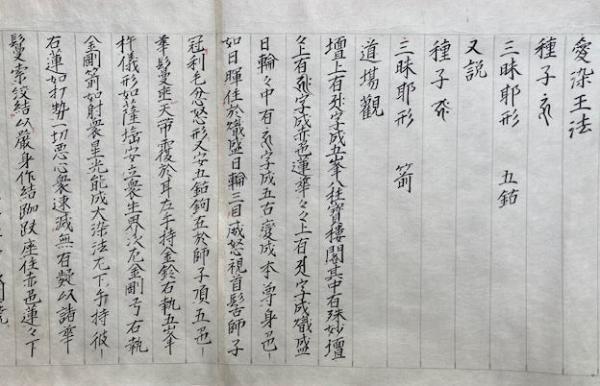 愛染王法
種子
三昧耶形　五鈷
又説
種子
三昧耶形　箭
道場觀
壇上有字成五峯八柱寶樓閣其中有殊妙壇
々上有字成赤色蓮華々々上有字成熾盛
日輪々中有字成五古変成本尊身色｜
如日暉住於熾盛日輪三目威怒視首髻師子
冠利毛忿怒形又安五鈷鉤在於師子頂五色｜
華鬘垂天帶覆於耳左手持金鈴右執五峯
杵儀形如薩埵安立衆生界次左金剛弓右執
金剛箭如射衆星光能成大染法左下手持彼｜
右蓮如打勢一切悪心衆速滅無有疑以諸華
鬘索絞結以嚴身作結跏趺座住赤色蓮々下